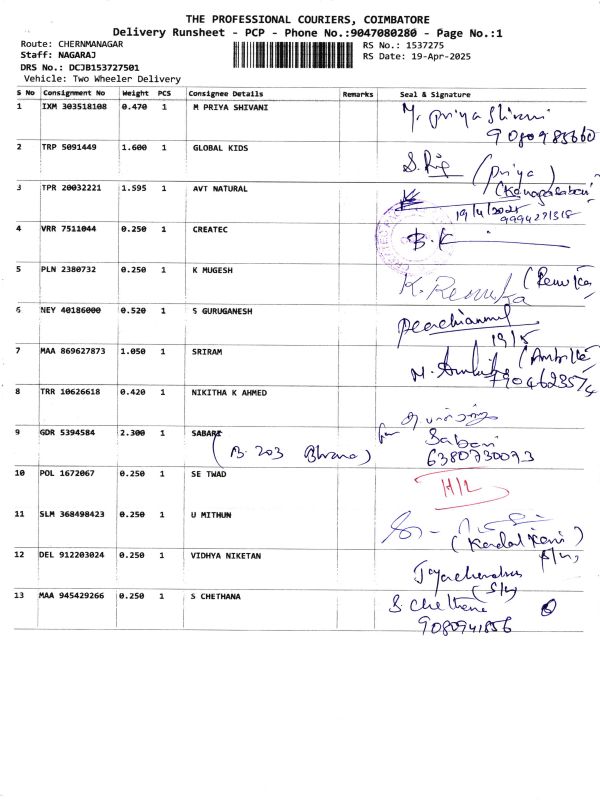 THE PROFESSIONAL COURIERS, COIMBATORE
Delivery Runsheet - PCP - Phone No.:9047080280 - Page No.:1
Route: CHERNMANAGAR
RS No.: 1537275
Staff: NAGARAJ
RS Date: 19-Apr-2025
DRS No.: DCJB153727501
Vehicle: Two Wheeler Delivery
S No Consignment No Weight PCS Consignee Details Remarks Seal & Signature
1 IXM 303518108 0.470 1 M PRIYA SHIVANI M. Priya Shivani
2 TRP 5091449 1.600 1 GLOBAL KIDS (Priya)
3 TPR 20032221 1.595 1 AVT NATURAL
19/4/2025
4 VRR 7511044 0.250 1 CREATEC B.K
5 PLN 2380732 0.250 1 K MUGESH K. Renuka (Renuka
6 NEY 40186000 0.520 1 S GURUGANESH
7 MAA 869627873 1.050 1 SRIRAM
8 TRR 10626618 0.420 1 NIKITHA K AHMED
9 GDR 5394584 2.300 1 SABARI Sabari
(B. 203 ) 6380730093
10 POL 1672067 0.250 1 SE TWAD H/L
11 SLM 368498423 0.250 1 U MITHUN
12 DEL 912203024 0.250 1 VIDHYA NIKETAN
13 MAA 945429266 0.250 1 S CHETHANA S. Chethana
9080941856